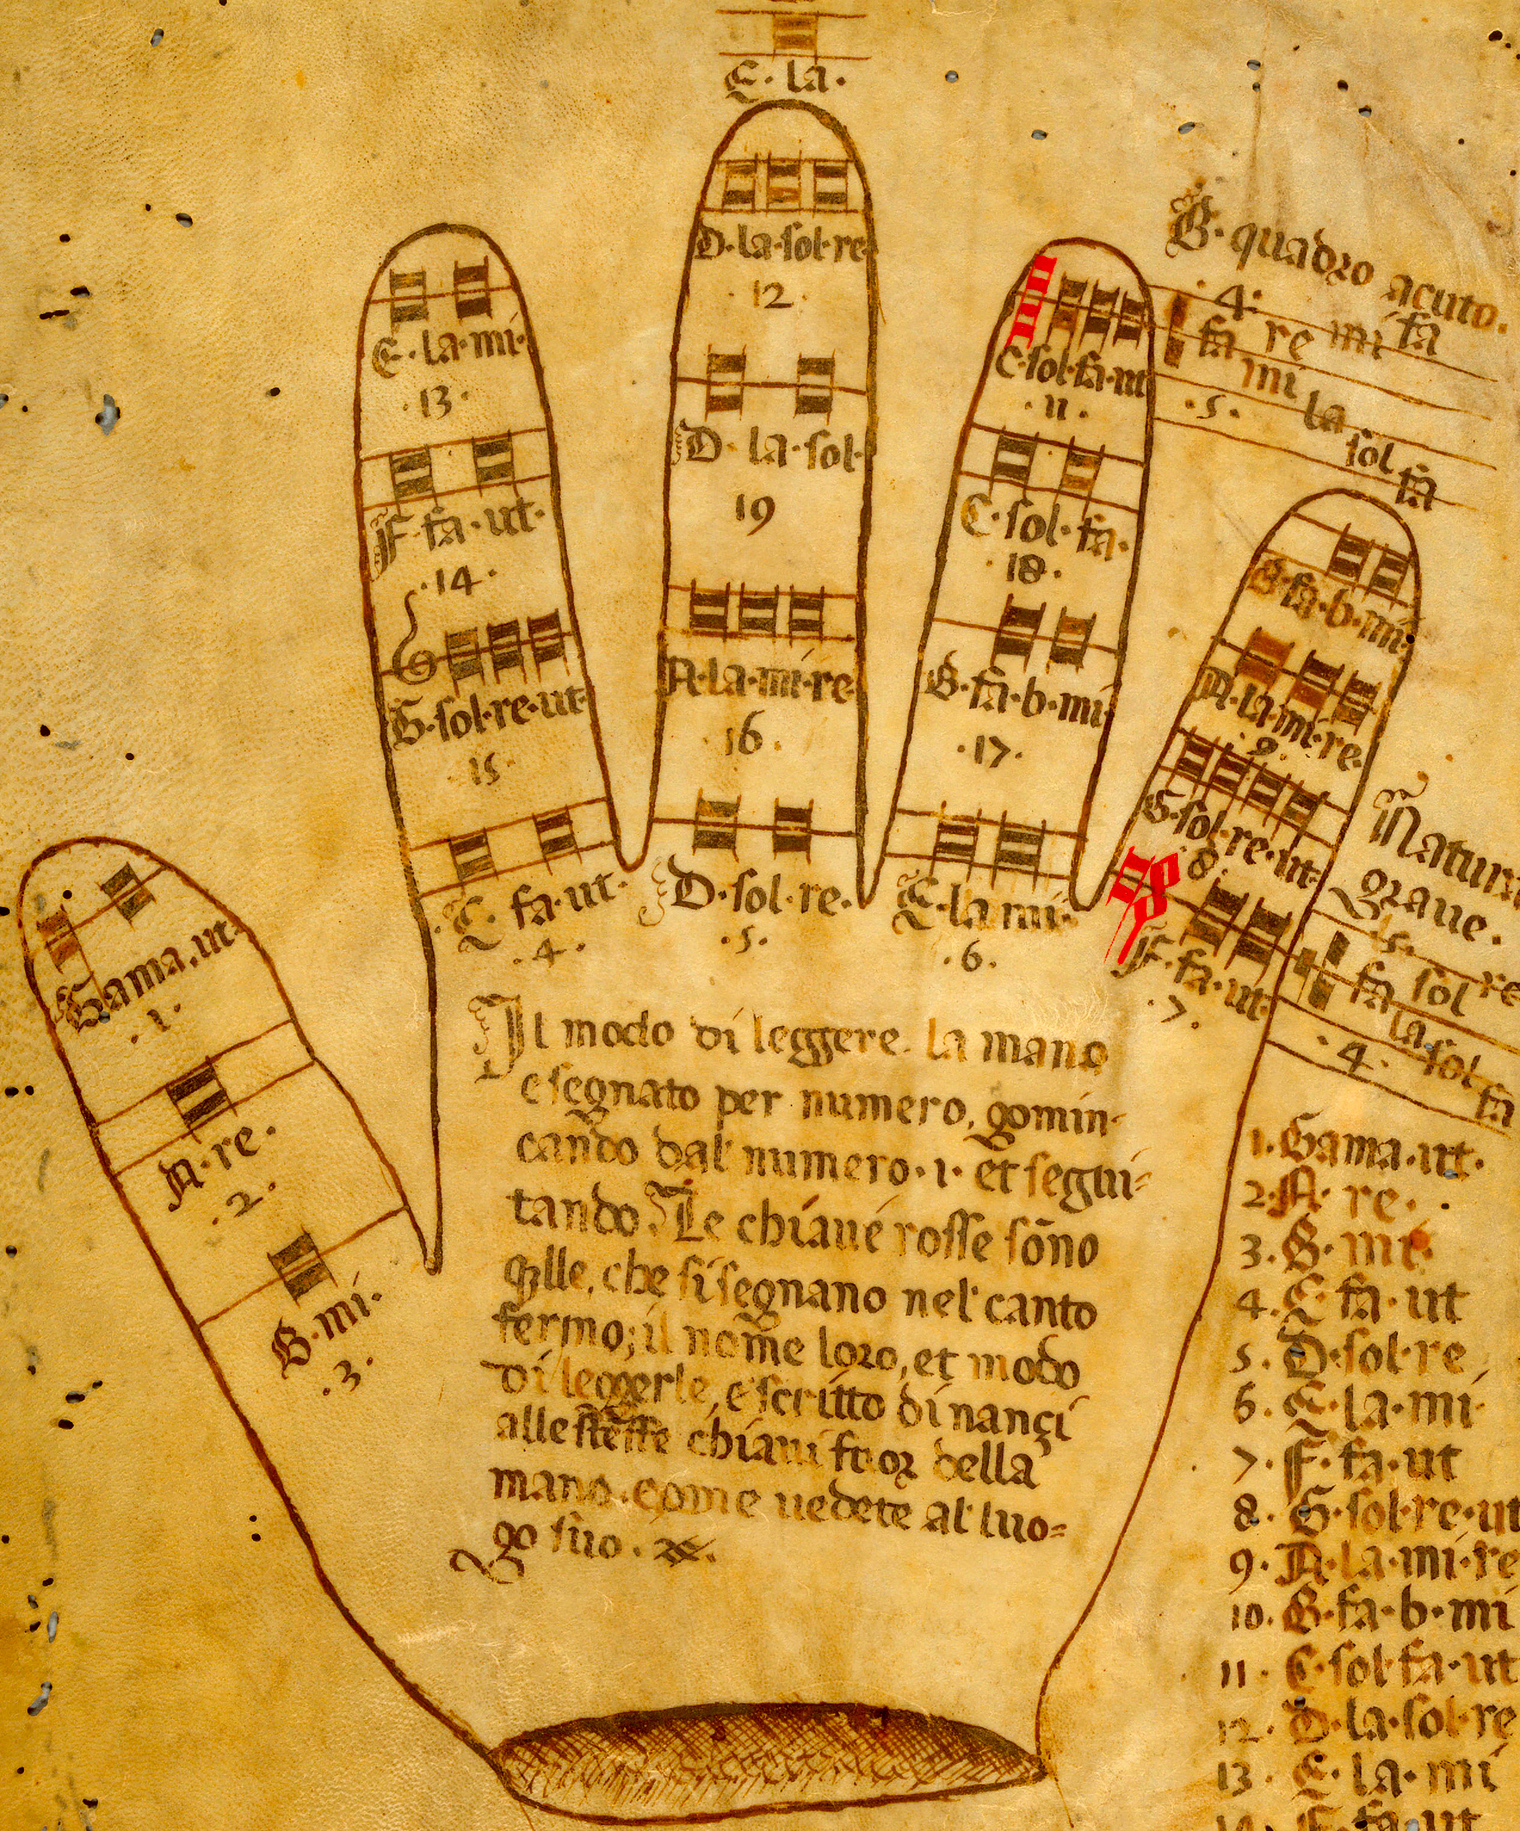 E · la ·
D · la · sol · re
12 ·
E · la · mi ·
· 13 ·
D · la · sol ·
19
F · fa · ut ·
· 14 ·
A · la · mi · re ·
16 ·
G · sol · re · ut
15 ·
C · sol · fa · ut
· 11 ·
C · sol · fa ·
· 18 ·
B · fa · b · mi
· 17 ·
B · fa · b · mi ·
A · la · mi · re ·
· 9 ·
G · sol · re · ut
· 8 ·
F · fa · ut ·
· 7 ·
C · fa · ut ·
· 4 ·
D · sol · re ·
· 5 ·
E · la mi ·
· 6 ·
Gama · ut ·
· 1 ·
A · re ·
· 2 ·
B · mi ·
· 3 ·
B · quadro acuto ·
· 4 ·
fa re mi fa
mi la sol fa
· 5 ·
Natura
graue ·
· 5 ·
fa sol re
la sol fa
· 4 ·
Il modo di leggere la mano
e segnato per numero, gomin-
cando dal numero · 1 · et segui-
tando. Le chiaue rosse sōno
qlle, che si segnano nel canto
fermo; il nome loro, et modo
di leggerle, e scritto dinançi
alle stesse chiaui fuor della
mano · come uedete al luo=
go suo ·
1 · Gama · ut ·
2 · A · re ·
3 · B · mi ·
4 · C fa · ut
5 · D · sol · re
6 · E · la · mi
7 · F · fa · ut
8 · G · sol · re · ut
9 · A · la · mi · re
10 · B · fa · b · mi
11 · C · sol · fa · ut
12 · D · la · sol · re
13 · E · la · mi
14 · F · fa · ut